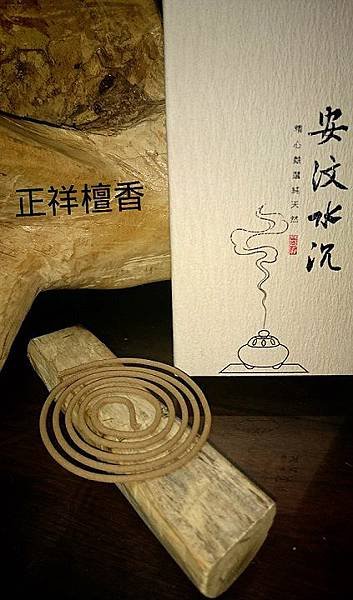 安汶水沉
精心甄選純天然
正祥檀香